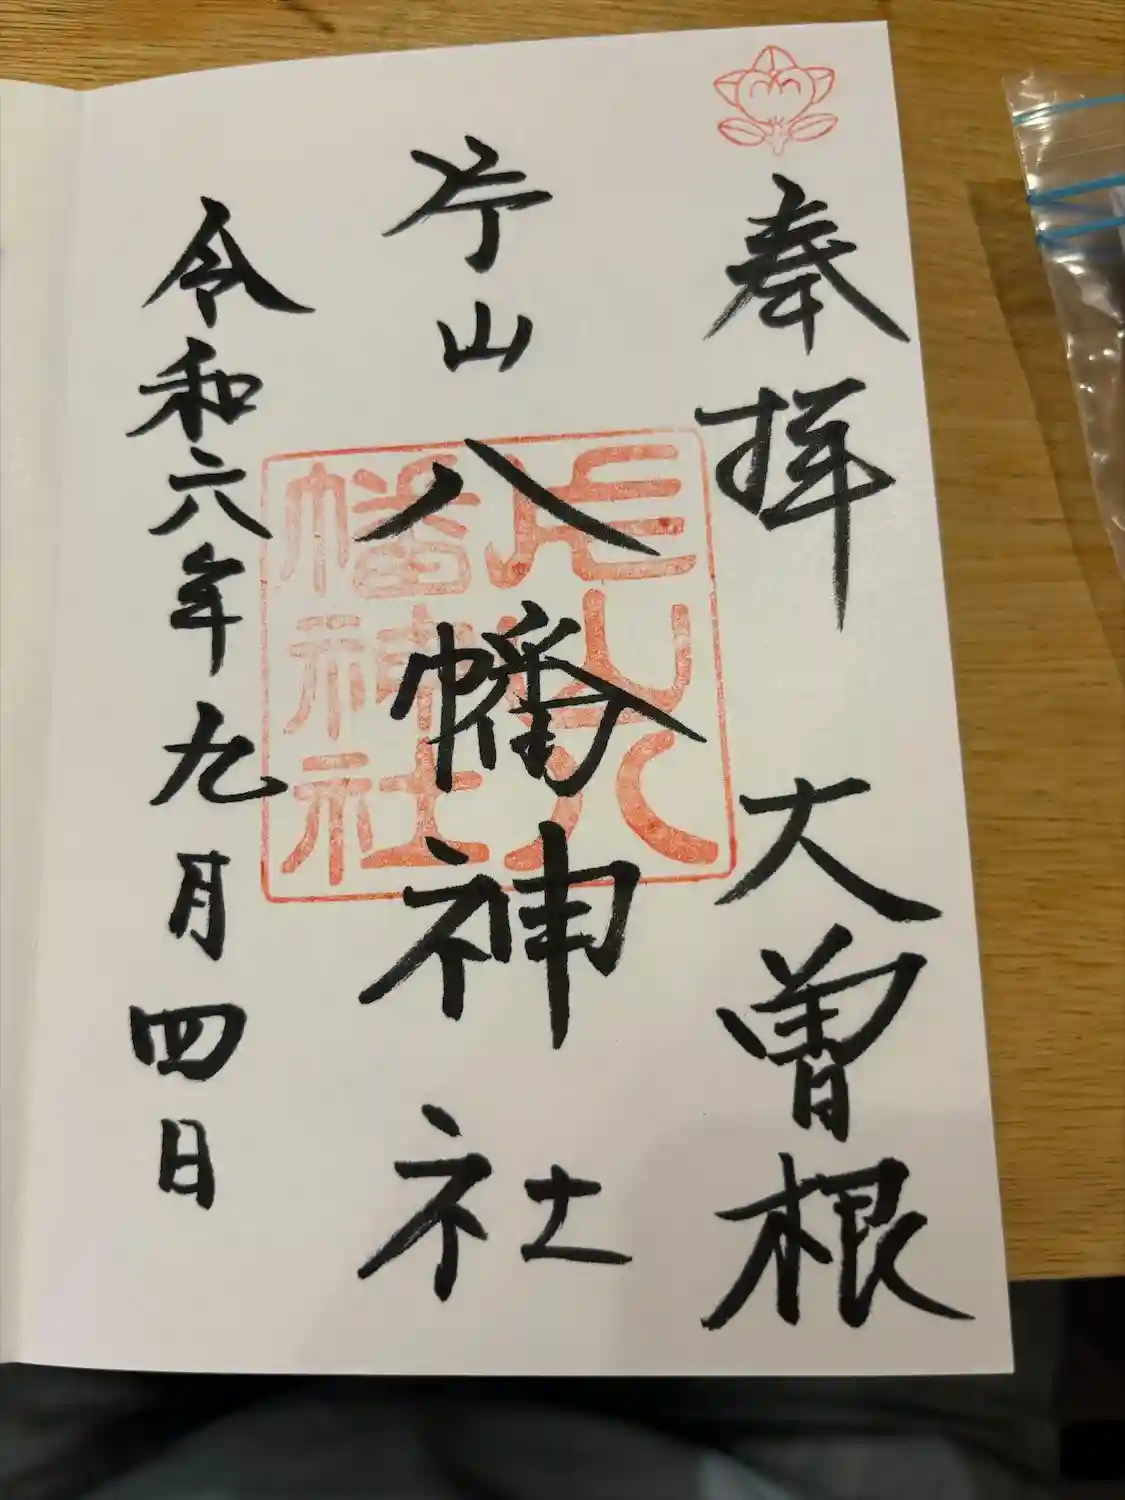 奉拝 大曽根
片山八幡神社
片山八幡神社
令和六年九月四日